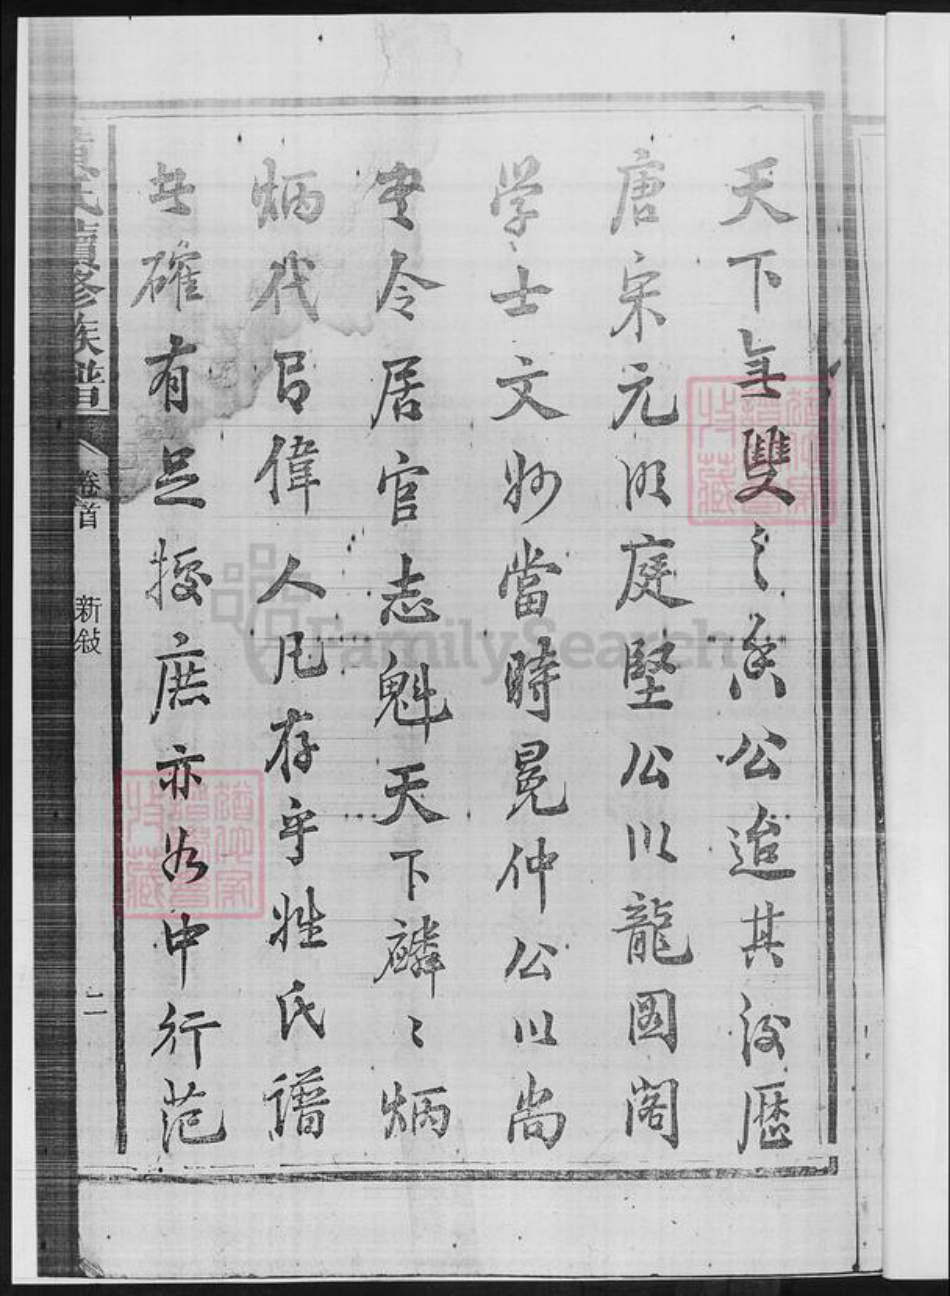 天下無雙之香公迨其後歷
唐宋元明庭堅公以龍圖閣
学士文妙當時冕仲公以尚
書令居官志魁天下麟々炳
炳代有偉人凡存乎姓氏譜
者確有足授庶亦為中行范
黃氏續修族譜
卷首
新敍
二
FamilySearch